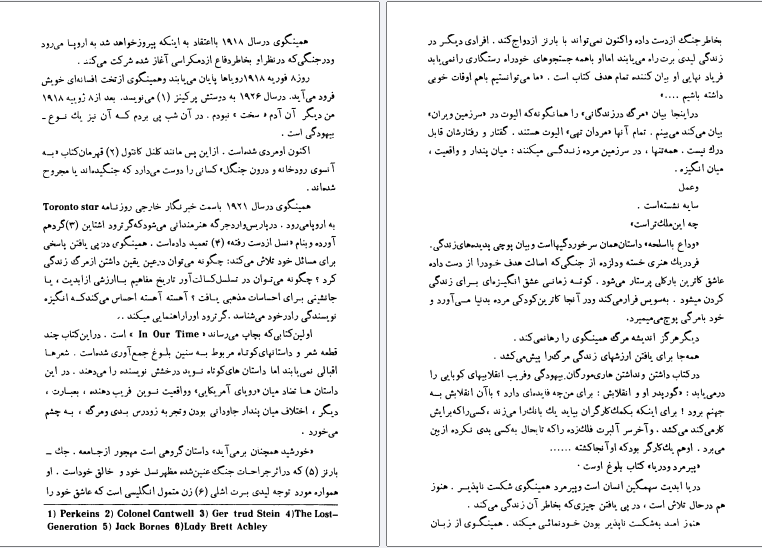 همینگوی درسال ۱۹۱۸ بااعتقاد به اینکه پیروزخواهد شد به اروپا میرود
ودرجنگی‌که درنظراو بخاطردفاع ازدمکراسی آغاز شده شرکت می‌کند .
روز۸ فوریه ۱۹۱۸رویاها پایان می‌یابند وهمینگوی ازتخت افسانه‌ای خویش
فرود می‌آید. درسال ۱۹۲۶ به دوستش پرکینز (۱) می‌نویسد. بعد از۸ ژوییه ۱۹۱۸
من دیگر آن آدم « سخت » نبودم . در آن شب پی بردم کــه آن نیز یك نوع ـ
بیهودگی است .
اکنون اومردی شده‌است . ازاین پس مانند کلنل کانتول (۲) قهرمان‌کتاب «بـه
آنسوی رودخانه و درون جنگل» کسانی را دوست می‌دارد که جنگیده‌اند یا مجروح
شده‌اند .
همینگوی درسال ۱۹۲۱ باسمت خبرنگار خارجی روزنامه Toronto star
به اروپامی‌رود . درپاریس‌واردجرگه هنرمندانی می‌شودکه‌گرترود اشتاین (۳)گردهم
آورده وبنام «نسل ازدست رفته» (۴) تعمید داده‌است . همینگوی درپی یافتن پاسخی
برای مسائل خود تلاش می‌کند: چگونه می‌توان درعین یقین داشتن ازمرگ زندگی
کرد ؟ چگونه می‌تـوان در تسلسل‌کسالت‌آور تاریخ مفاهیم باارزشی ازابدیت ، یـا
جانشینی بـرای احساسات مذهبی یـافت ؟ آهسته آهسته احساس می‌کندکـه انگیزه
نویسندگی رادرخود می‌شناسد .گرترود اوراراهنمایی میکند ..
اولین‌کتابی‌که بچاپ می‌رساند « In Our Time » است . دراین‌کتاب چند
قطعه شعر و داستانهای‌کوتـاه مربوط بـه سنین بلـوغ جمع‌آوری شده‌است . شعرهـا
اقبالی نمی‌یابند اما داستان های‌کوتاه نـوید درخشش نویسنده را می‌دهند . در این
داستان هـا تضاد میان «رویای آمریکایی» وواقعیت نـوین فریب دهنده ، بعبـارت ،
دیگر ، اختلاف میان پندار جاودانی بودن وتجربه زودرس بـدی ومرگ ، بـه چشم
می‌خورد .
«خورشید همچنان برمی‌آید» داستان‌گروهی است مهجور ازجـامعه . جك ــ
بارنز (۵) که دراثرجراحـات جنگ عنین‌شده مظهرنسل خود و خالق خوداست . او
همواره مورد توجه لیدی بـرت اشلی (۶) زن متمول انگلیسی است که عاشق خود را
1) Perkeins 2) Colonel Cantwell 3) Ger trud Stein 4)The Lost-
Generation 5) Jack Bornes 6)Lady Brett Achley
بخاطرجنگ ازدست داده واکنون نمی‌تواند با بارنز ازدواج‌کند . افرادی دیگـر در
زندگی لیدی بـرت‌راه می‌یابند امـااو باهمه جستجوهای خودراه رستگاری رانمی‌یابد
فریاد نهایی او بیان کننده تمام هدف کتاب است . «ما می‌توانستیم باهم اوقات خوبی
داشته باشیم ....»
دراینجا بیان «مرگ درزندگانی» را همانگونه‌که الیوت در «سرزمین ویران»
بیان می‌کند می‌بینم . تمام آنها «مردان تهی» الیوت هستند . گفتار و رفتارشان قابل
درك نیست . همه‌تنها ، در سرزمین مرده زنـدگـی میکنند : میان پندار و واقعیت ،
میان انگیزه .
وعمل
سایه نشسته‌است .
چه این‌ملك‌تراست»
«وداع بااسلحه» داستان‌همان سرخوردگیهااست وبیان پوچی پدیده‌های‌زندگی.
فردریك هنری خسته ودلزده از جنگی‌که اصالت هدف خودرا از دست داده
عاشق کاترین بارکلی پرستار می‌شود . کوتـه زمـانی عشق انگیـزه‌ای بـرای زندگـی
کردن میشود . به‌سویس فرارمی‌کند ودر آنجا کاترین‌کودکی مرده بدنیا مـی‌آورد و
خود بامرگی پوچ‌می‌میرد.
دیگرهرگز اندیشه مرگ همینگوی را رهانمی‌کند .
همه‌جا برای یافتن ارزشهای زندگی مرگ‌را پیش‌می‌کشد .
درکتاب داشتن ونداشتن هاری‌مورگان‌بیهودگی وفریب انقلابیهای کوبایی را
درمی‌یابد : «گورپدر او و انقلابش : برای من‌چه فایده‌ای دارد ؟ باآن انقلابش بـه
جهنم برود ! برای اینکه بکمك‌کارگران بیاید یك بانك‌را می‌زند ،کسی‌راکه‌برایش
کارمی‌کند می‌کشد . وآخرسر آلبرت فلك‌زده راکه تابحال به‌کسی بدی نکرده ازبین
می‌برد . اوهم یك‌کارگر بودکه اوآنجاکشته .......
«پیرمرد ودریا» کتاب بلوغ اوست .
دریا ابدیت سهمگین انسان است وپیرمرد همینگوی شکست ناپذیـر . هنوز
هم درحال تلاش است ، در پی یافتن چیزی‌که بخاطر آن زندگی می‌کند .
هنوز امـد به‌شکست ناپذیر بودن خودنمائی میکند . همینگوی از زبـان